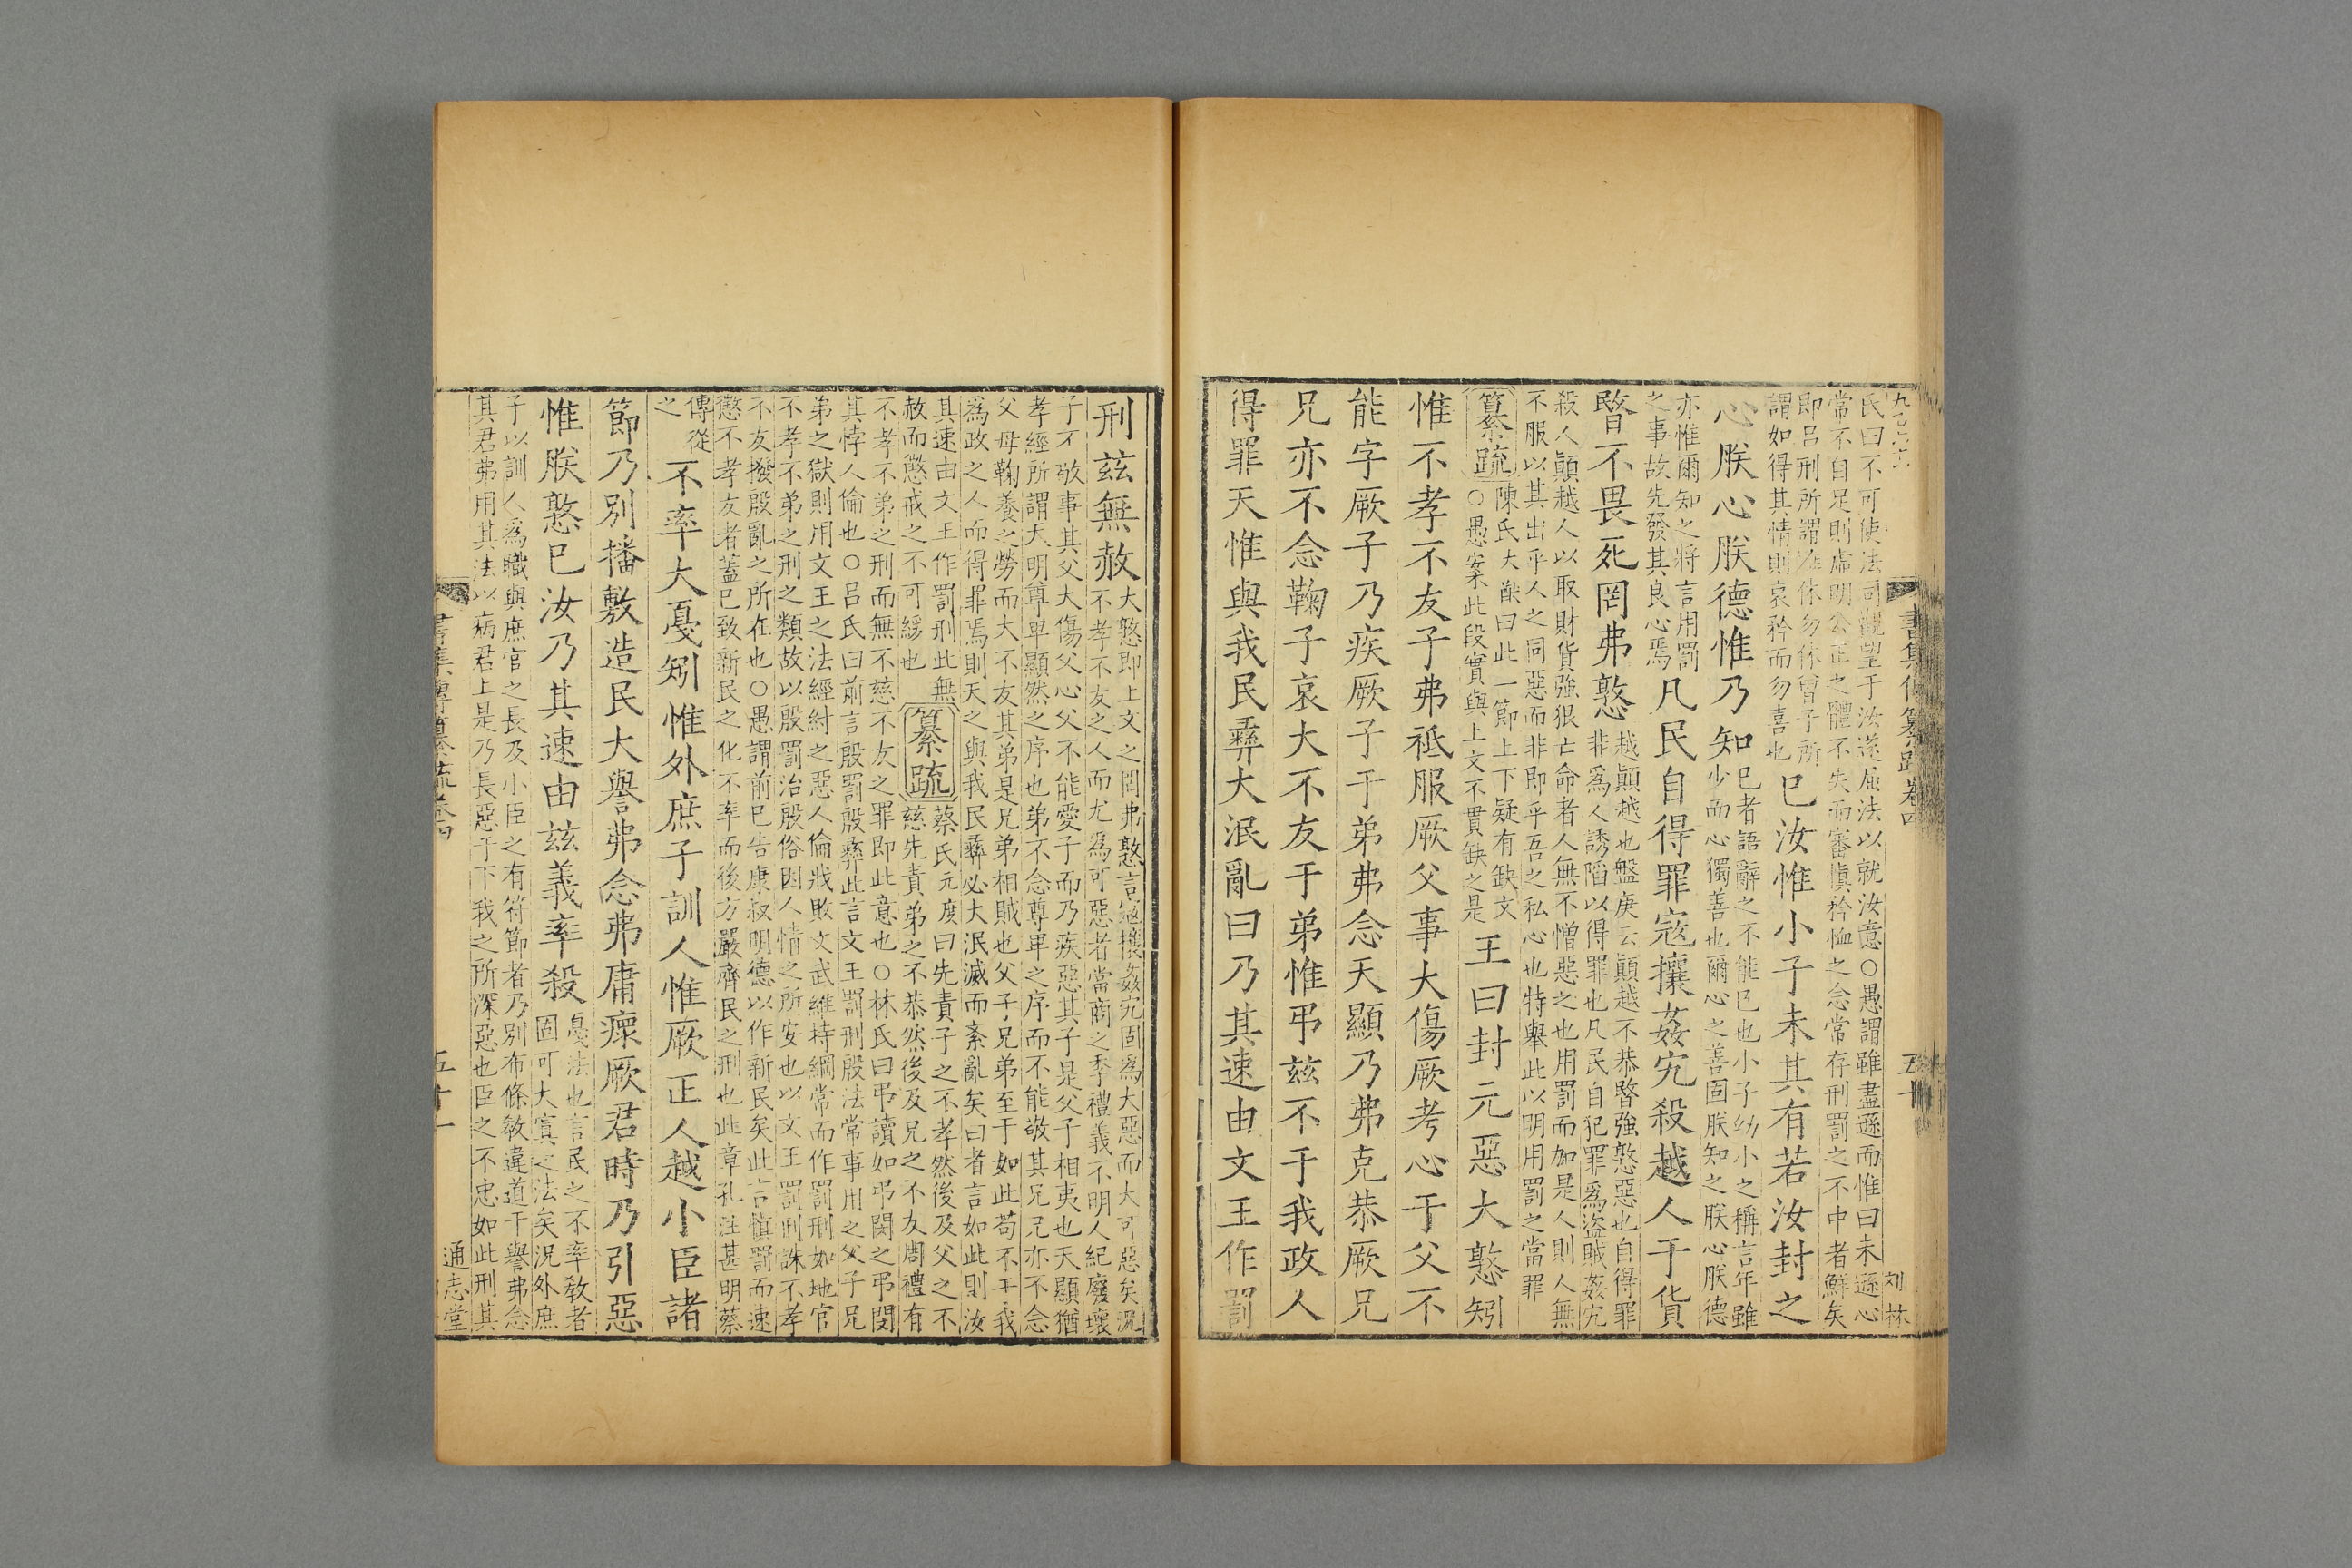 書集傳纂疏卷四
五十
刘林
氏曰不可使法司觀望于汝遂屈法以就汝意○愚謂雖盡遜而惟曰未遜心
常不自足則虛明公正之體不失而審愼矜恤之念常存刑罰之不中者鮮矣
即呂刑所謂雖休勿休曾子所
謂如得其情則哀矜而勿喜也
已汝惟小子未其有若汝封之
心朕心朕德惟乃知
已者語辭之不能已也小子幼小之稱言年雖
少而心獨善也爾心之善固朕知之朕心朕德
亦惟爾知之將言用罰
之事故先發其良心焉
凡民自得罪寇攘姦宄殺越人于貨
暋不畏死罔弗憝
越顚越也盤庚云顚越不恭暋強憝惡也自得罪
非爲人誘䧟以得罪也凡民自犯罪爲盜賊姦宄
殺人顚越人以取財貨強狠亡命者人無不憎惡之也用罰而加是人則人無
不服以其出乎人之同惡而非即乎吾之私心也特舉此以明用罰之當罪
纂疏
陳氏大猷曰此一節上下疑有缺文
○愚案此段實與上文不貫缺之是
王曰封元惡大憝矧
惟不孝不友子弗祗服厥父事大傷厥考心于父不
能字厥子乃疾厥子于弟弗念天顯乃弗克恭厥兄
兄亦不念鞠子哀大不友于弟惟弔兹不于我政人
得罪天惟與我民彝大泯亂曰乃其速由文王作罰
刑兹無赦
大憝即上文之罔弗憝言寇攘姦宄固爲大惡而大可惡矣況
不孝不友之人而尤爲可惡者當商之季禮義不明人紀廢壞
子不敬事其父大傷父心父不能愛子而乃疾惡其子是父子相夷也天顯猶
孝經所謂天明尊卑顯然之序也弟不念尊卑之序而不能敬其兄兄亦不念
父母鞠養之勞而大不友其弟是兄弟相賊也父子兄弟至于如此苟不于我
爲政之人而得罪焉則天之與我民彝必大泯滅而紊亂矣曰者言如此則汝
其速由文王作罰刑此無
赦而懲戒之不可緩也
纂疏
蔡氏元度曰先責子之不孝然後及父之不
慈先責弟之不恭然後及兄之不友周禮有
不孝不弟之刑而無不慈不友之罪即此意也○林氏曰弔讀如弔閔之弔閔
其悖人倫也○呂氏曰前言殷罰殷彝此言文王罰刑殷法常事用之父子兄
弟之獄則用文王之法經紂之惡人倫戕敗文武維持綱常而作罰刑如地官
不孝不弟之刑之類故以殷罰治殷俗因人情之所安也以文王罰刑誅不孝
不友撥殷亂之所在也○愚謂前已告康叔明德以作新民矣此言愼罰而速
懲不孝友者蓋已致新民之化不率而後方嚴齊民之刑也此章孔注甚明蔡
傳從
之
不率大戞矧惟外庶子訓人惟厥正人越小臣諸
節乃別播敷造民大譽弗念弗庸瘝厥君時乃引惡
惟朕憝已汝乃其速由兹義率殺
戞法也言民之不率教者
固可大寘之法矣況外庶
子以訓人爲職與庶官之長及小臣之有符節者乃別布條敎違道干譽弗念
其君弗用其法以病君上是乃長惡于下我之所深惡也臣之不忠如此刑其
書集傳纂疏卷四
五十一
通志堂